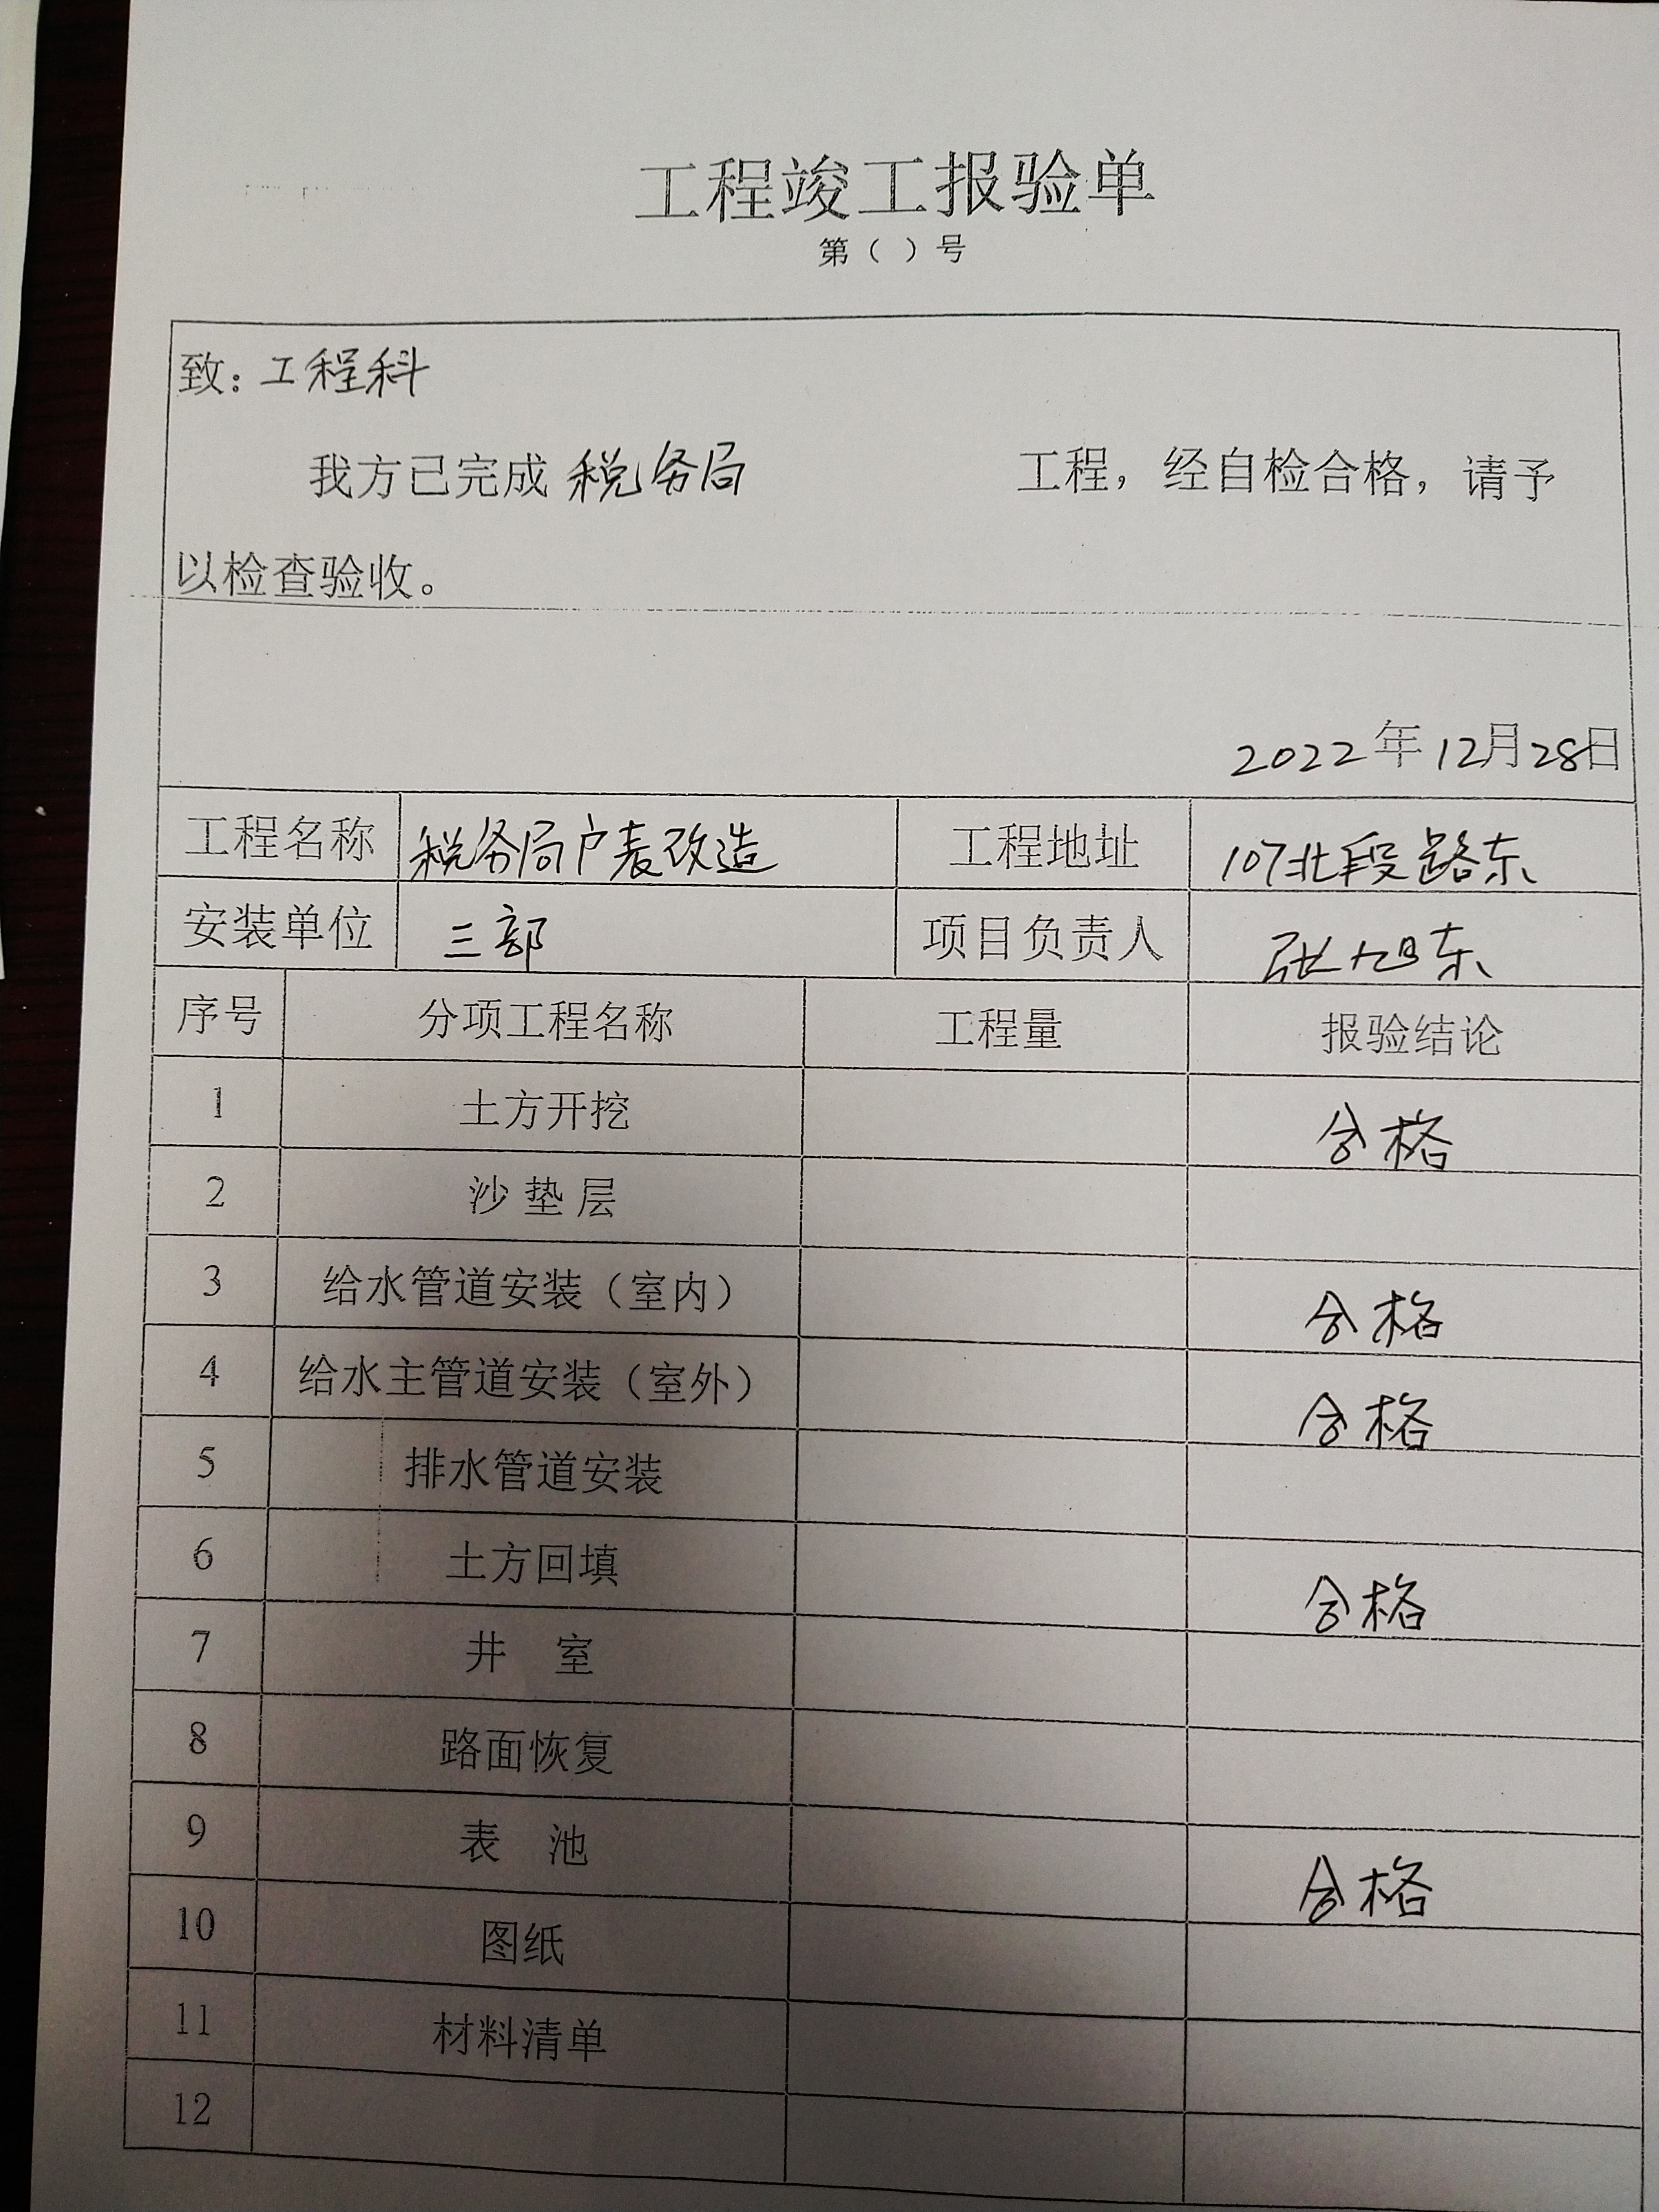 工程竣工报验单
第（ ）号
致：工程科
我方已完成 税务局 工程，经自检合格，请予
以检查验收。
2022年12月28日
工程名称 税务局户表改造 工程地址 107北段路东
安装单位 三部 项目负责人 张旭东
序号 分项工程名称 工程量 报验结论
1 土方开挖 合格
2 沙垫层
3 给水管道安装（室内） 合格
4 给水主管道安装（室外） 合格
5 排水管道安装
6 土方回填 合格
7 井 室
8 路面恢复
9 表 池 合格
10 图纸
11 材料清单
12